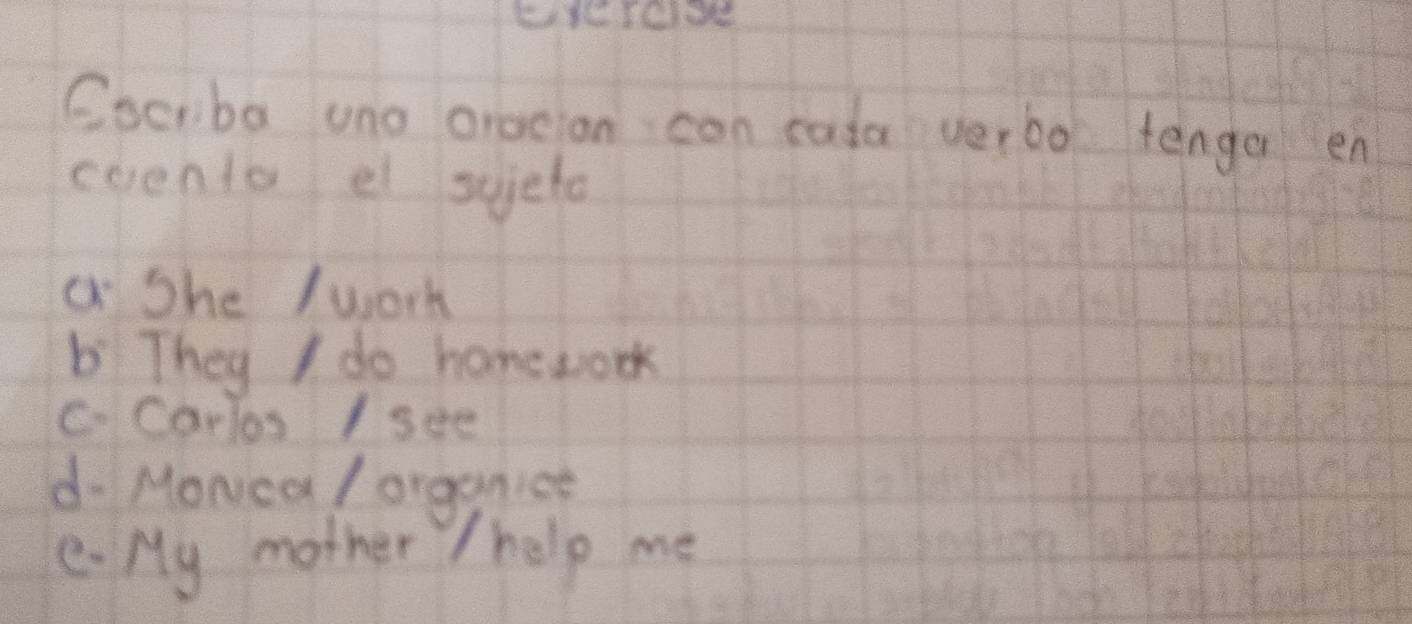 Exercise
Escriba una oracion con cada verbo tenga en
cuenta el sujeto
a. She / work
b. They / do homework
c. Carlos / see
d- Monica / organice
e. My mother / help me